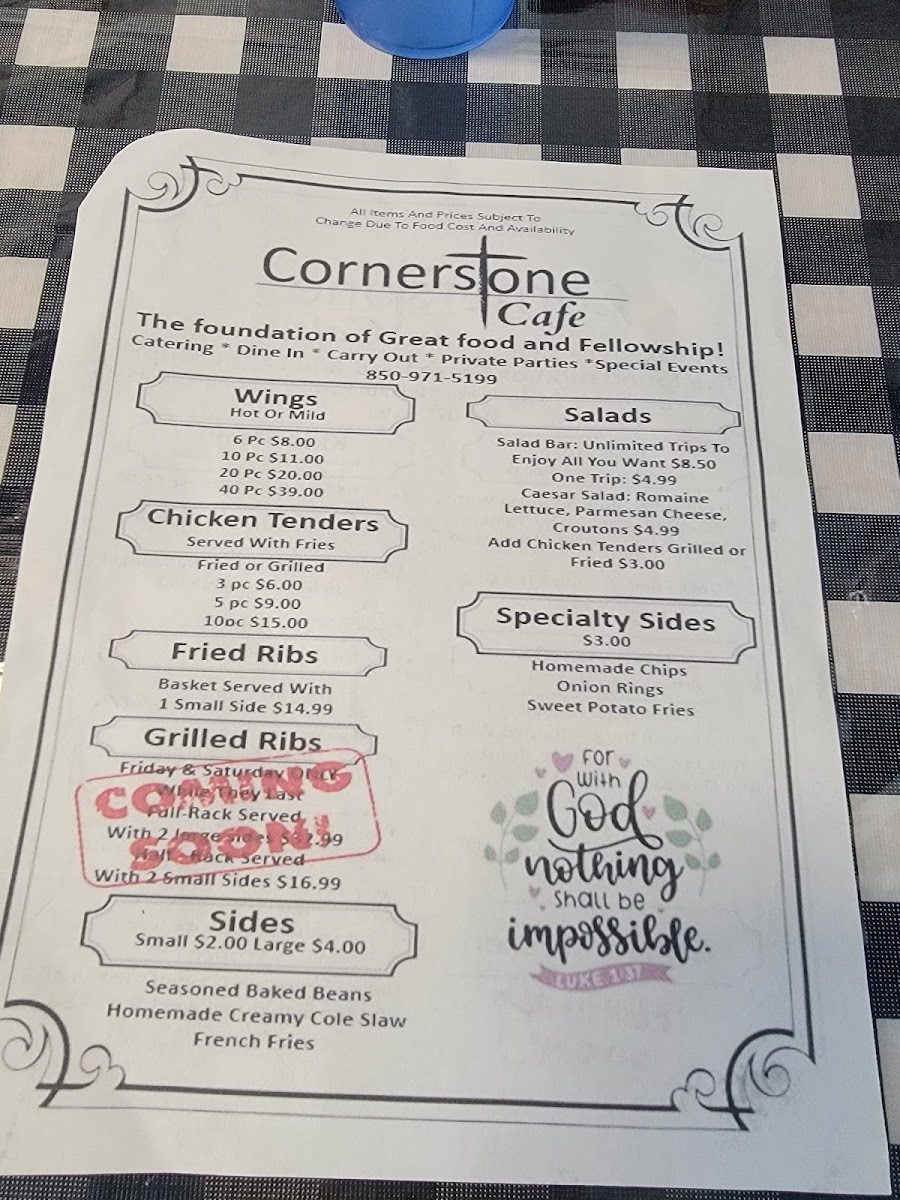 All Items And Prices Subject To
Change Due To Food Cost And Availability
Cornerstone
Cafe
The foundation of Great food and Fellowship!
Catering * Dine In * Carry Out * Private Parties *Special Events
850-971-5199
Wings
Hot Or Mild
6 Pc $8.00
10 Pc $11.00
20 Pc $20.00
40 Pc $39.00
Chicken Tenders
Served With Fries
Fried or Grilled
3 pc $6.00
5 pc $9.00
10pc $15.00
Fried Ribs
Basket Served With
1 Small Side $14.99
Grilled Ribs
Friday & Saturday ONLY
While They Last
Full-Rack Served
With 2 large sides $32.99
Half-Rack Served
With 2 Small Sides $16.99
COMING
SOON!
Sides
Small $2.00 Large $4.00
Seasoned Baked Beans
Homemade Creamy Cole Slaw
French Fries
Salads
Salad Bar: Unlimited Trips To
Enjoy All You Want $8.50
One Trip: $4.99
Caesar Salad: Romaine
Lettuce, Parmesan Cheese,
Croutons $4.99
Add Chicken Tenders Grilled or
Fried $3.00
Specialty Sides
$3.00
Homemade Chips
Onion Rings
Sweet Potato Fries
For
with
God
nothing
shall be
impossible.
LUKE 1:37